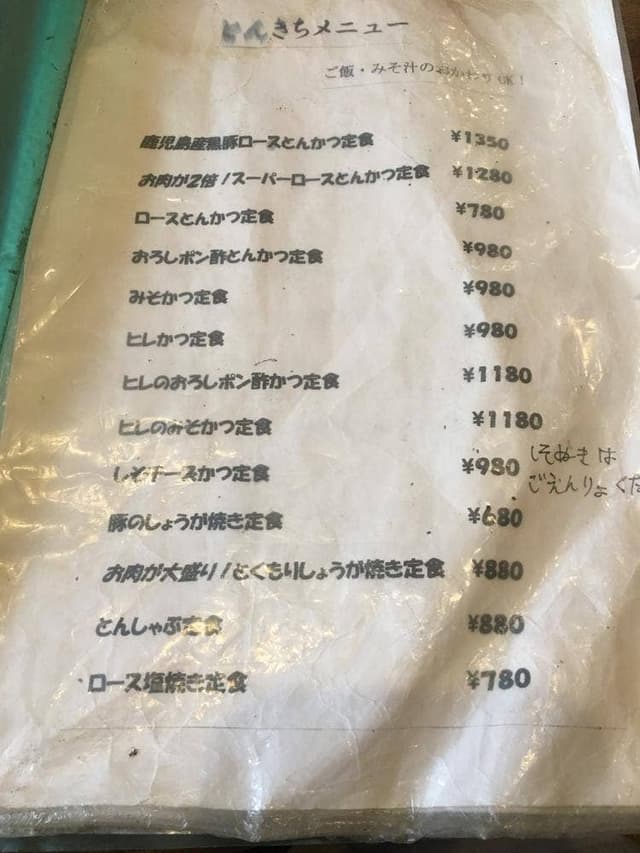 とんきちメニュー
ご飯・みそ汁のおかわりOK!
鹿児島産黒豚ロースとんかつ定食 ¥1350
お肉が2倍!スーパーロースとんかつ定食 ¥1280
ロースとんかつ定食 ¥780
おろしポン酢とんかつ定食 ¥980
みそかつ定食 ¥980
ヒレかつ定食 ¥980
ヒレのおろしポン酢かつ定食 ¥1180
ヒレのみそかつ定食 ¥1180
しそチーズかつ定食 ¥980
しそぬきは
ごえんりょくだ
豚のしょうが焼き定食 ¥680
お肉が大盛り!とくもりしょうが焼き定食 ¥880
とんしゃぶ定食 ¥880
ロース塩焼き定食 ¥780